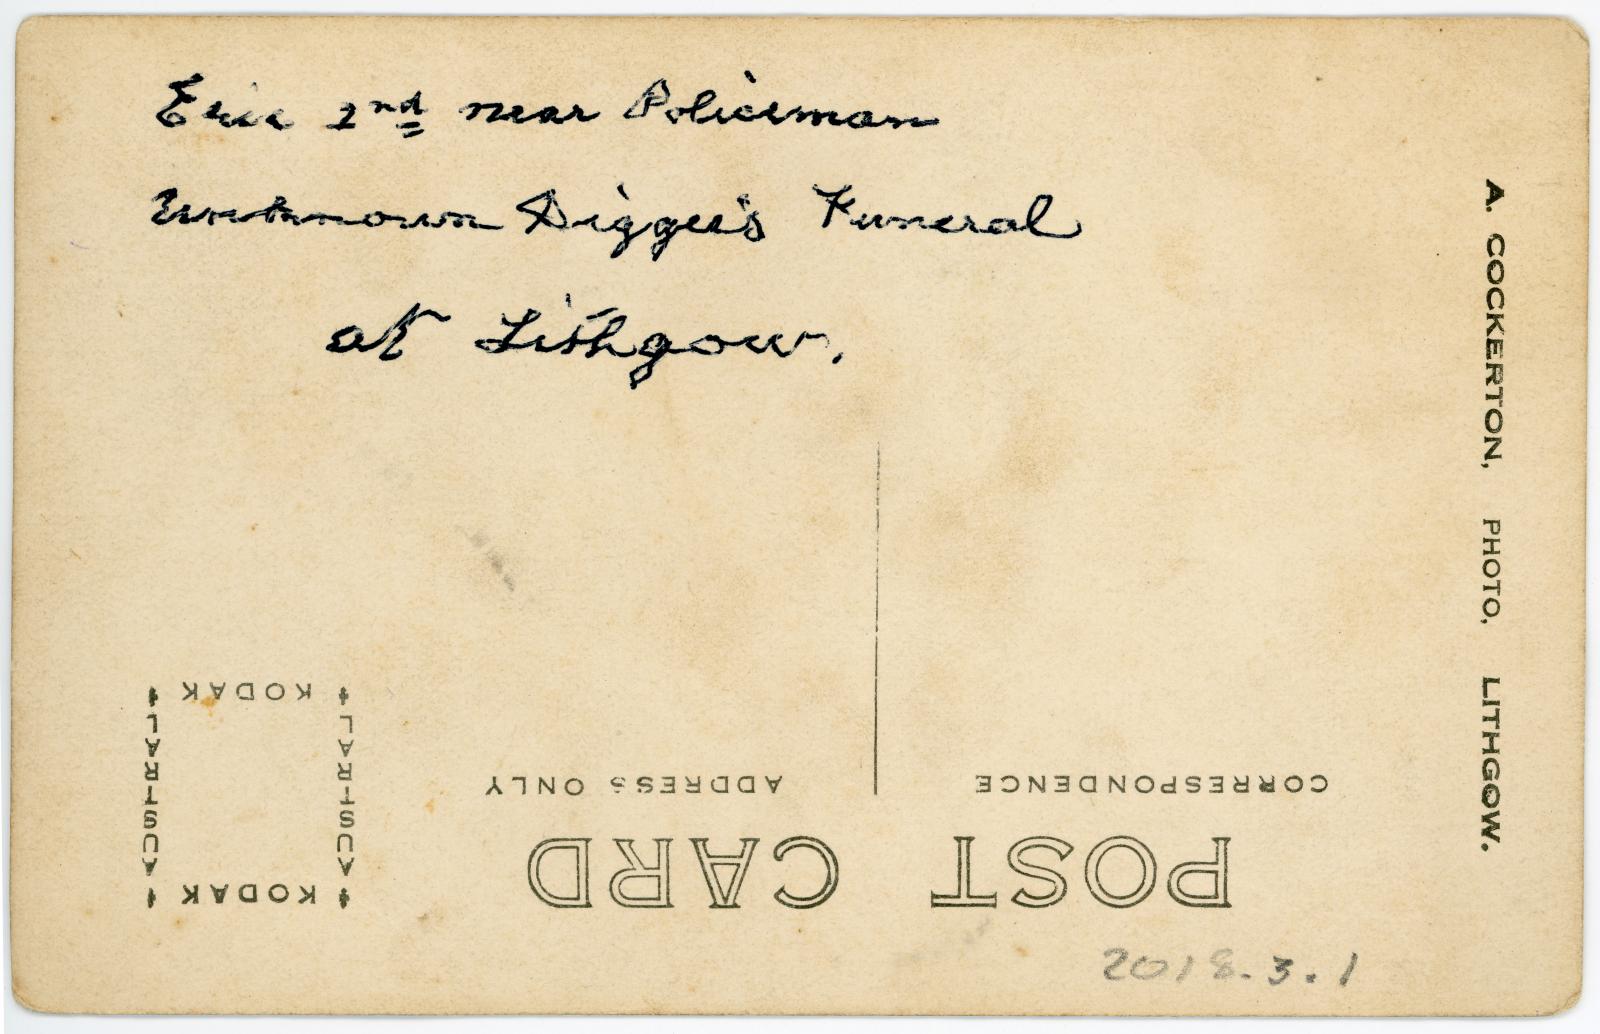 Eric 2nd near Policeman
Unknown Digger's Funeral
at Lithgow.
A. COCKERTON, PHOTO, LITHGOW.
POST CARD
CORRESPONDENCE
ADDRESS ONLY
KODAK
AUSTRAL
AUSTRAL
KODAK
2018.3.1